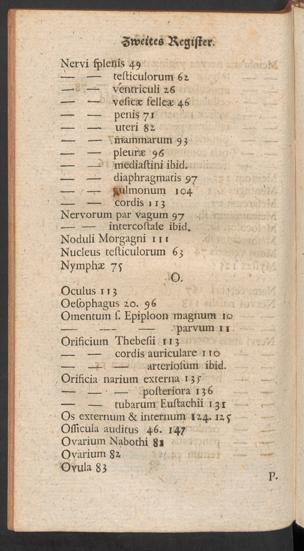 Zweites Register.
Nervi ſplenis 49
— — teſticulorum 62
— — ventriculi 26
— — veſicæ felleæ 46
— — penis 71
— — uteri 82
— — mammarum 93
— — pleuræ 96
— — mediaſtini ibid.
— — diaphragmatis 97
— — pulmonum 104
— — cordis 113
Nervorum par vagum 97
— — intercoſtale ibid.
Noduli Morgagni 111
Nucleus teſticulorum 63
Nymphæ 75
O.
Oculus 113
Oeſophagus 20. 96
Omentum ſ. Epiploon magnum 10
— — — parvum 11
Orificium Thebeſii 113
— — cordis auriculare 110
— — — arterioſum ibid.
Orificia narium externa 135
— — — poſteriora 136
— — tubarum Euſtachii 131
Os externum & internum 124. 125
Oſſicula auditus 46. 147
Ovarium Nabothi 82
Ovarium 82
Ovula 83
P.